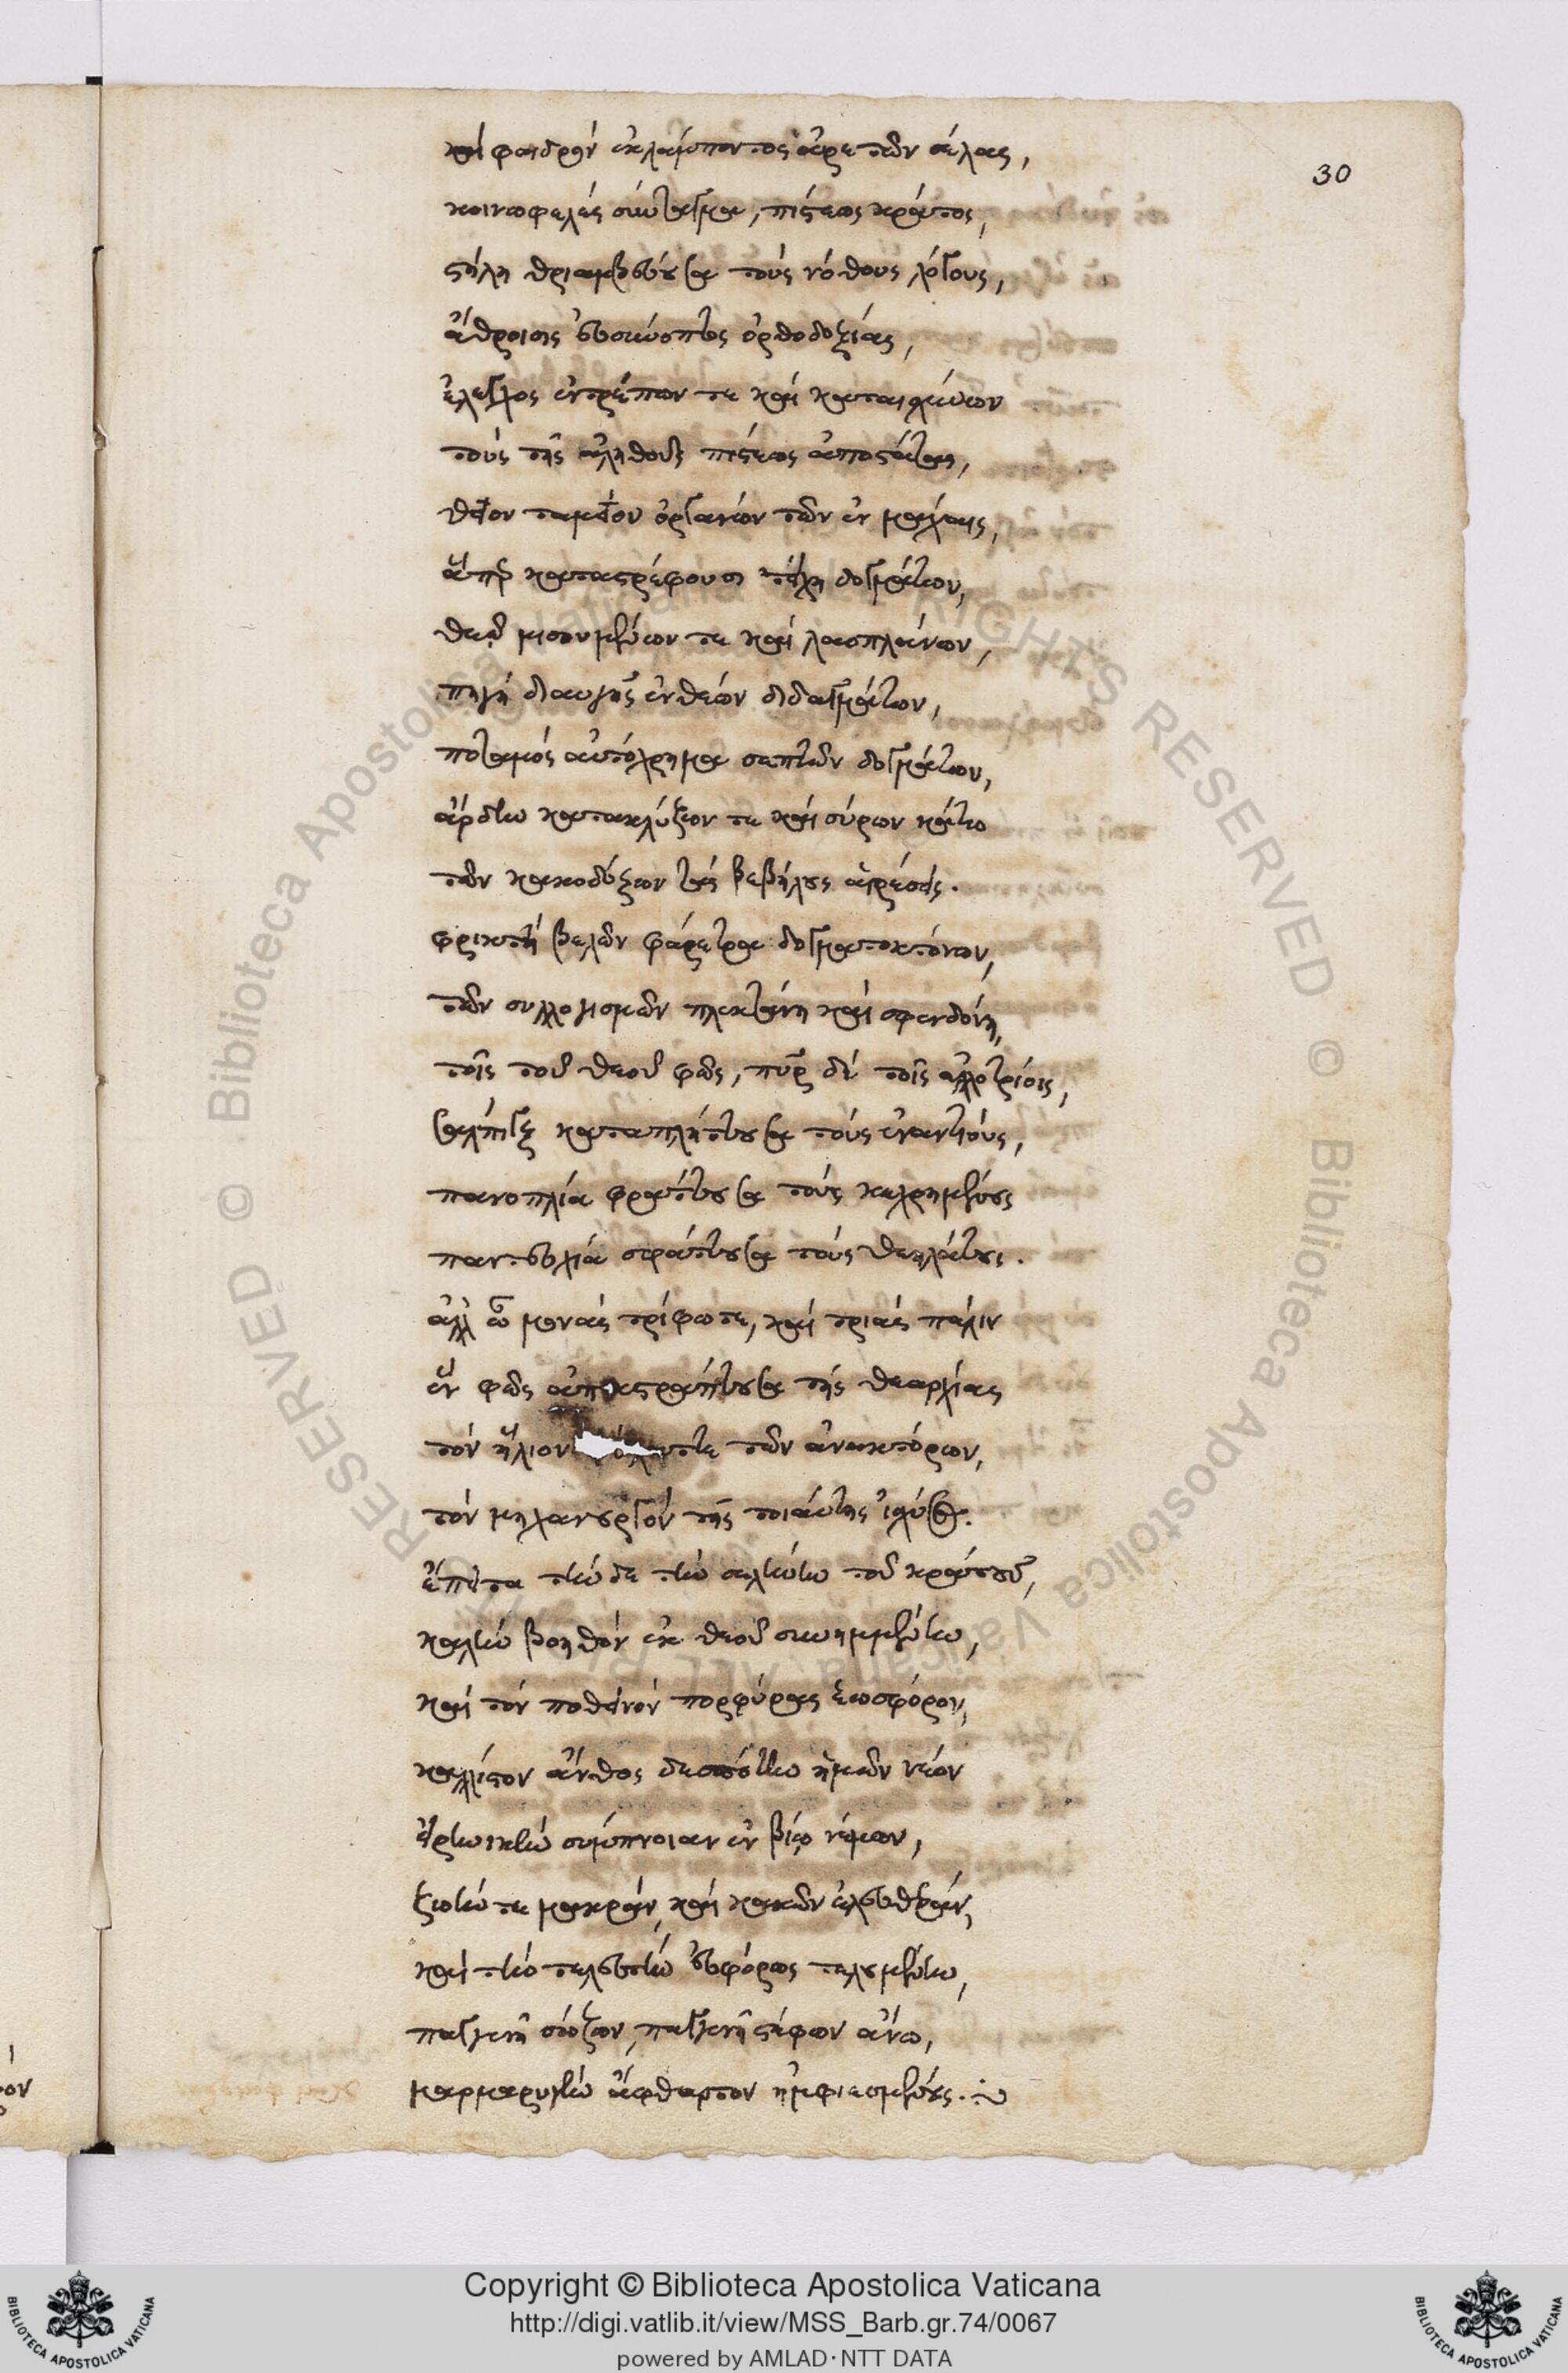 30
καὶ φαιδρὸν ἐκλάμποντος ἀρετῶν σέλας,
κοινωφελὲς σύνταγμα, πίστεως κράτος,
στήλη θριαμβεύουσα τοὺς νόθους λόγους,
ἄθροισις εὐσύνοπτος ὀρθοδοξίας,
ἔλεγχος ἐντρέπων τε καὶ καταισχύνων
τοὺς τῆς ἀληθοῦς πίστεως ἀποστάτας,
θεῖον ταμεῖον ὀργάνων τῶν ἐν μάχαις,
ἅπερ καταστρέφουσι τείχη δογμάτων,
θεῷ μισουμένων τε καὶ λαοπλάνων,
πηγὴ διαυγὴς ἐνθέων διδαγμάτων,
ποταμὸς αὐτόχρημα σεπτῶν δογμάτων,
ἄρδην κατακλύζων τε καὶ σύρων κάτω
τῶν κακοδόξων τὰς βεβήλους αἱρέσεις.
φρικτὴ βελῶν φαρέτρα δογματοκτόνων,
τῶν συλλογισμῶν πλεκτάνη καὶ σφενδόνη,
τοῖς τοῦ θεοῦ φῶς, πῦρ δὲ τοῖς ἀλλοτρίοις,
σάλπιγξ καταπλήττουσα τοὺς ἐναντίους,
πανοπλία φράττουσα τοὺς κεχρημένους
παντευχία σφάττουσα τοὺς θεηλάτους.
ἀλλ' ὦ μονὰς τρίφωτε, καὶ τριὰς πάλιν
ἓν φῶς ἀπαστράπτουσα τῆς θεαρχίας
τὸν ἥλιον τῶν ἀνακτόρων,
τὸν μηχανουργὸν τῆς τοιαύτης ἰσχύος.
ἔπειτα τήνδε τὴν σελήνην τοῦ κράτους,
καλὴν βοηθὸν ἐκ θεοῦ συνημμένην,
καὶ τὸν ποθεινὸν πορφύρας ἑωσφόρον,
κάλλιστον ἄνθος δεσπότην ἡμῶν νέον
εἰρηνικὴν σύμπνοιαν ἐν βίῳ νέμων,
ζωήν τε μακρὰν, καὶ κακῶν ἐλευθέραν,
καὶ τὴν τελευτὴν εὐφόρως τελουμένην,
παγγενῆ σώζων, παγγενῆ στέφων ἄνω,
μαρμαρυγὴν ἄφθαρτον ἠμφιεσμένους.
Copyright © Biblioteca Apostolica Vaticana
http://digi.vatlib.it/view/MSS_Barb.gr.74/0067
powered by AMLAD·NTT DATA